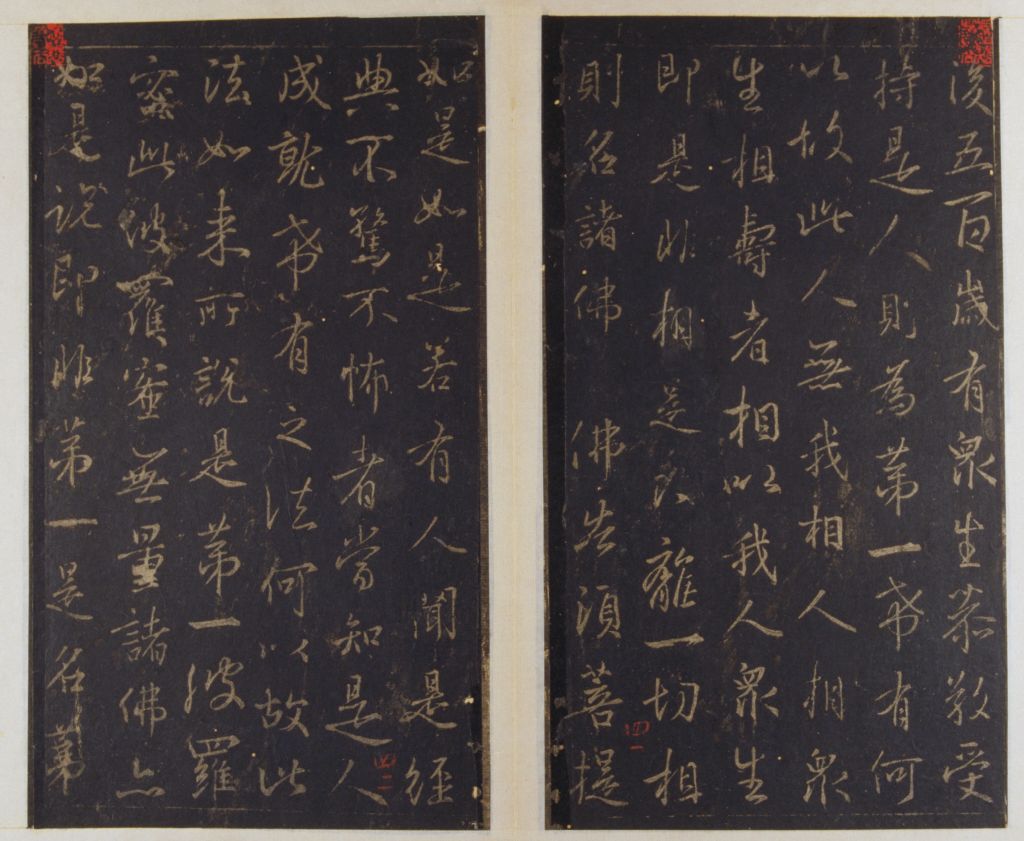 後五百歲有眾生恭敬受
持是人則為第一希有何
以故此人無我相人相眾
生相壽者相以我人眾生
即是非相是以離一切相
則名諸佛 佛告須菩提
四一
如是如是若有人聞是經
典不驚不怖者當知是人
四二
成就希有之法何以故此
法如來所說是第一波羅
蜜此波羅蜜無量諸佛亦
如是說即非第一是名第